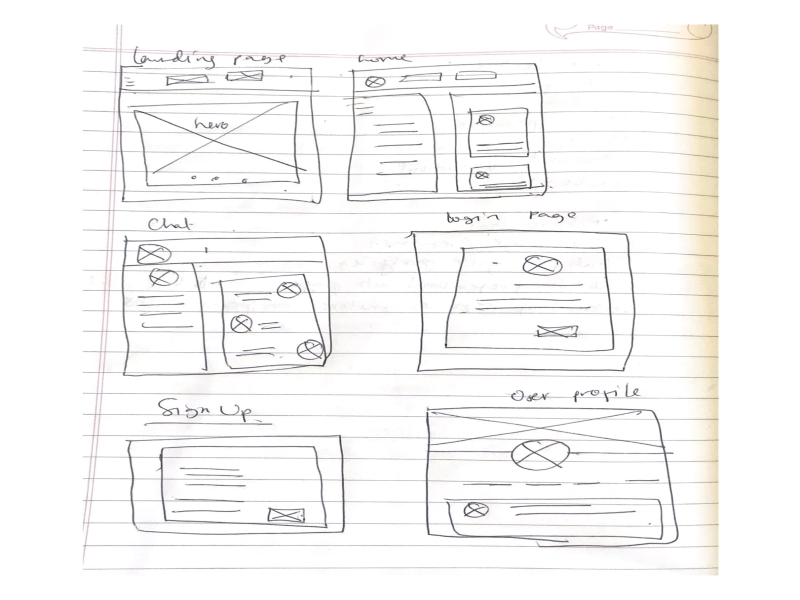 Page
Landing page
home
hero
Chat
Login Page
Sign Up
User profile